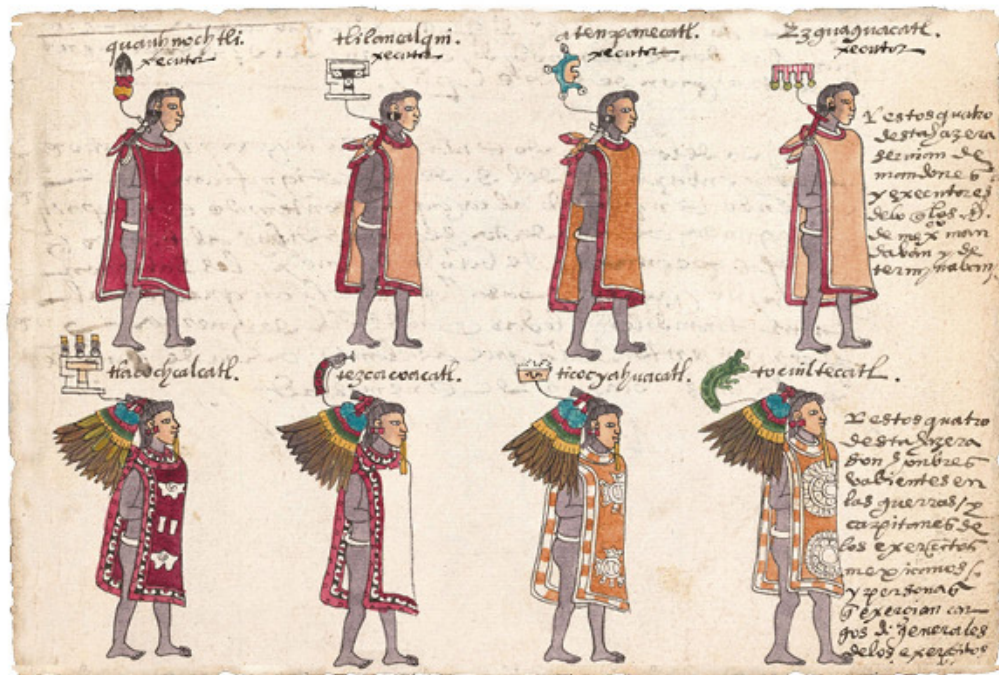 quauhnochtli.
xecutor
tlilancalqui.
xecutor
atenpanecatl.
xecutor
Ezguaguacatl.
xecutor
Y estos quatro
desta hazera
seruian de
mandones
y executores
delo q los S.
de mexco man
daban y de
terminaban,
tlacochcalcatl.
tezcacoacatl.
ticocyahuacatl.
tocuiltecatl.
Y estos quatro
desta hazera
son honbres
valientes en
las guerras / y
capitanes de
los exercitos
mexicanos /
y personas
q exercian car-
gos de generales
delos exercitos